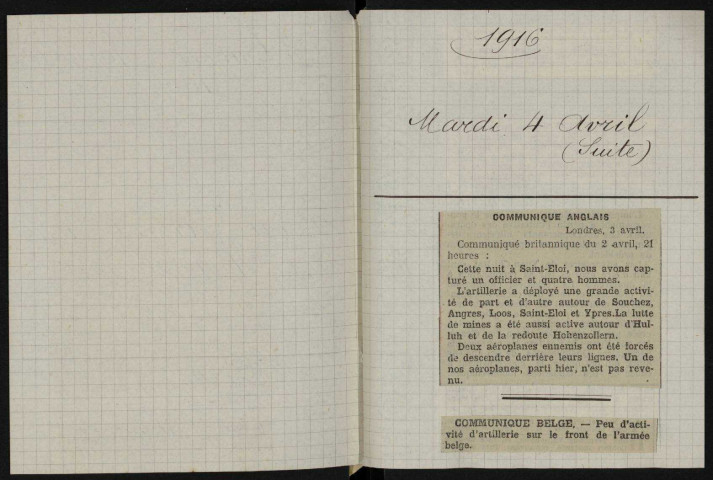 1916
Mardi 4 Avril
(Suite)
COMMUNIQUE ANGLAIS
Londres, 3 avril.
Communiqué britannique du 2 avril, 21
heures :
Cette nuit à Saint-Eloi, nous avons cap-
turé un officier et quatre hommes.
L'artillerie a déployé une grande activi-
té de part et d'autre autour de Souchez,
Angres, Loos, Saint-Eloi et Ypres.La lutte
de mines a été aussi active autour d'Hul-
luh et de la redoute Hohenzollern.
Deux aéroplanes ennemis ont été forcés
de descendre derrière leurs lignes. Un de
nos aéroplanes, parti hier, n'est pas reve-
nu.
COMMUNIQUE BELGE. — Peu d'acti-
vité d'artillerie sur le front de l'armée
belge.